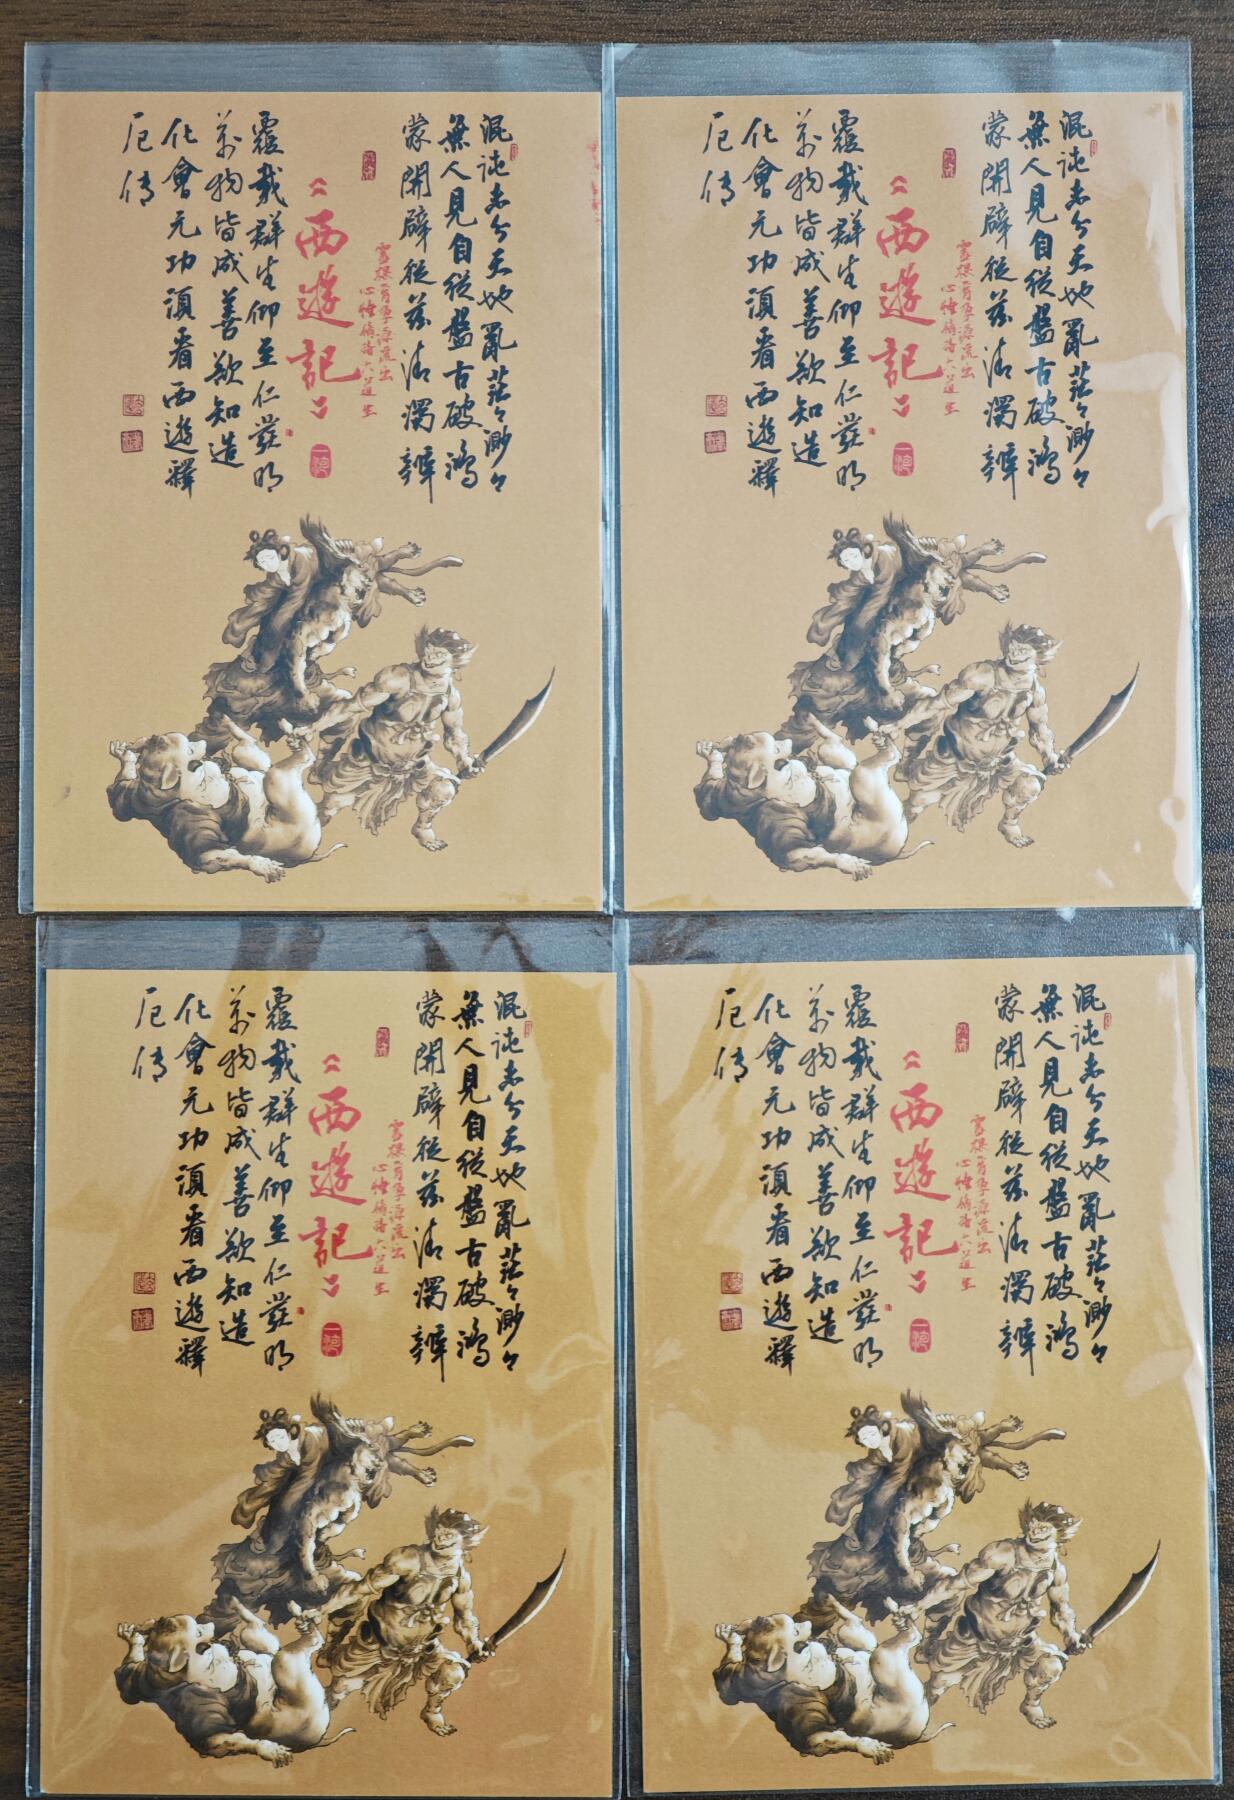 混沌未分天地亂茫々渺々
無人見自從盤古破鴻
蒙開辟從茲清濁辨
靈根育孕源流出
心性修持大道生
《西遊記》
覆載群生仰至仁發明
萬物皆成善欲知造
化會元功須看西遊釋
厄傳
混沌未分天地亂茫々渺々
無人見自從盤古破鴻
蒙開辟從茲清濁辨
靈根育孕源流出
心性修持大道生
《西遊記》
覆載群生仰至仁發明
萬物皆成善欲知造
化會元功須看西遊釋
厄傳
混沌未分天地亂茫々渺々
無人見自從盤古破鴻
蒙開辟從茲清濁辨
靈根育孕源流出
心性修持大道生
《西遊記》
覆載群生仰至仁發明
萬物皆成善欲知造
化會元功須看西遊釋
厄傳
混沌未分天地亂茫々渺々
無人見自從盤古破鴻
蒙開辟從茲清濁辨
靈根育孕源流出
心性修持大道生
《西遊記》
覆載群生仰至仁發明
萬物皆成善欲知造
化會元功須看西遊釋
厄傳